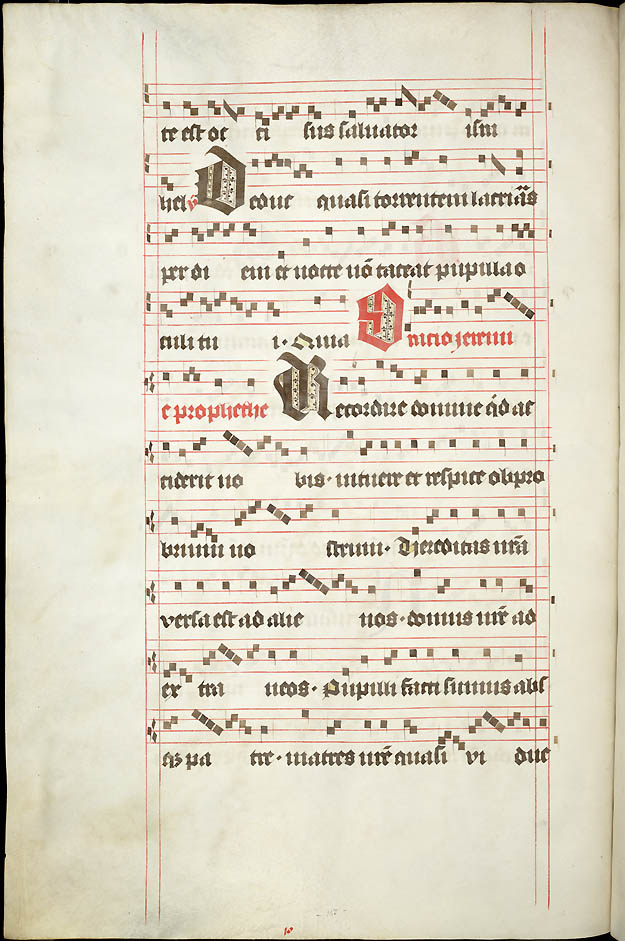 te est oc ci sus saluator isra
hel v Deduc quasi torrentem lacrias
per di em et nocte nō taceat pupilla o
culi tu i. Quia Oracio jeremi
e prophethe Recordare domine qd ac
ciderit no bis. intuere et respice obpro
brium no strum. Hereditas nrā
versa est ad alie nos. domus nrē ad
ex tra neos. Pupilli facti sumus abs
qz pa tre. matres nrē quasi vi due